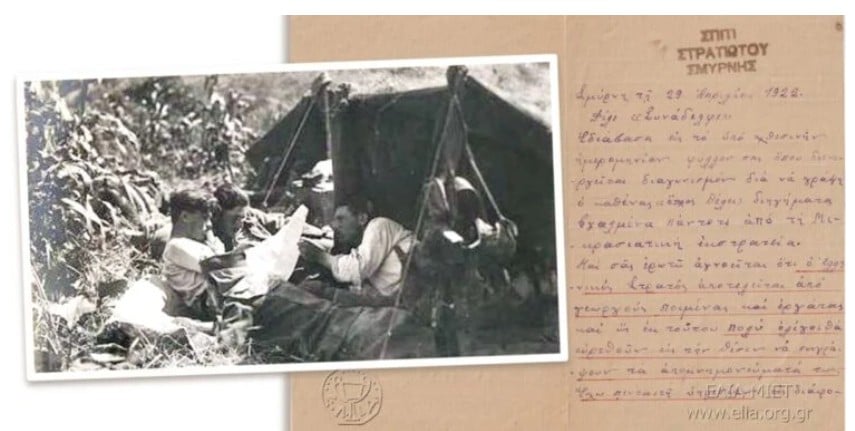 ΣΠΙΤΙ
ΣΤΡΑΤΙΩΤΟΥ
ΣΜΥΡΝΗΣ
Σμύρνη τῇ 29 Ἀπριλίου 1922.
Φίλε «Συνάδελφε»
Ἐδιάβασα εἰς τὸ ὑπὸ χθεσινὴν
ἡμερομηνίαν φύλλον σας ὅπου
διαγωνισμὸν διὰ νὰ γράψῃ
ὁ καθένας διηγήματα
βγαλμένα πάντοτε ἀπὸ τὴ Μι-
κρασιατικὴ ἐκστρατεία.
Καὶ σᾶς ἐρωτῶ ἀγνοεῖται ὅτι ὁ Ἑλλη-
νικὸς Στρατὸς ἀποτελεῖται ἀπὸ
γεωργοὺς ποιμένας καὶ ἐργάτας
καὶ ὡς ἐκ τούτου πολὺ ὀλίγοι θὰ
εὑρεθοῦν εἰς τὴν θέσιν νὰ συγγρά-
ψουν τὰ ἀπομνημονεύματα
διάφο-
ΕΛΙΑ-ΜΙΕΤ
www.elia.org.gr